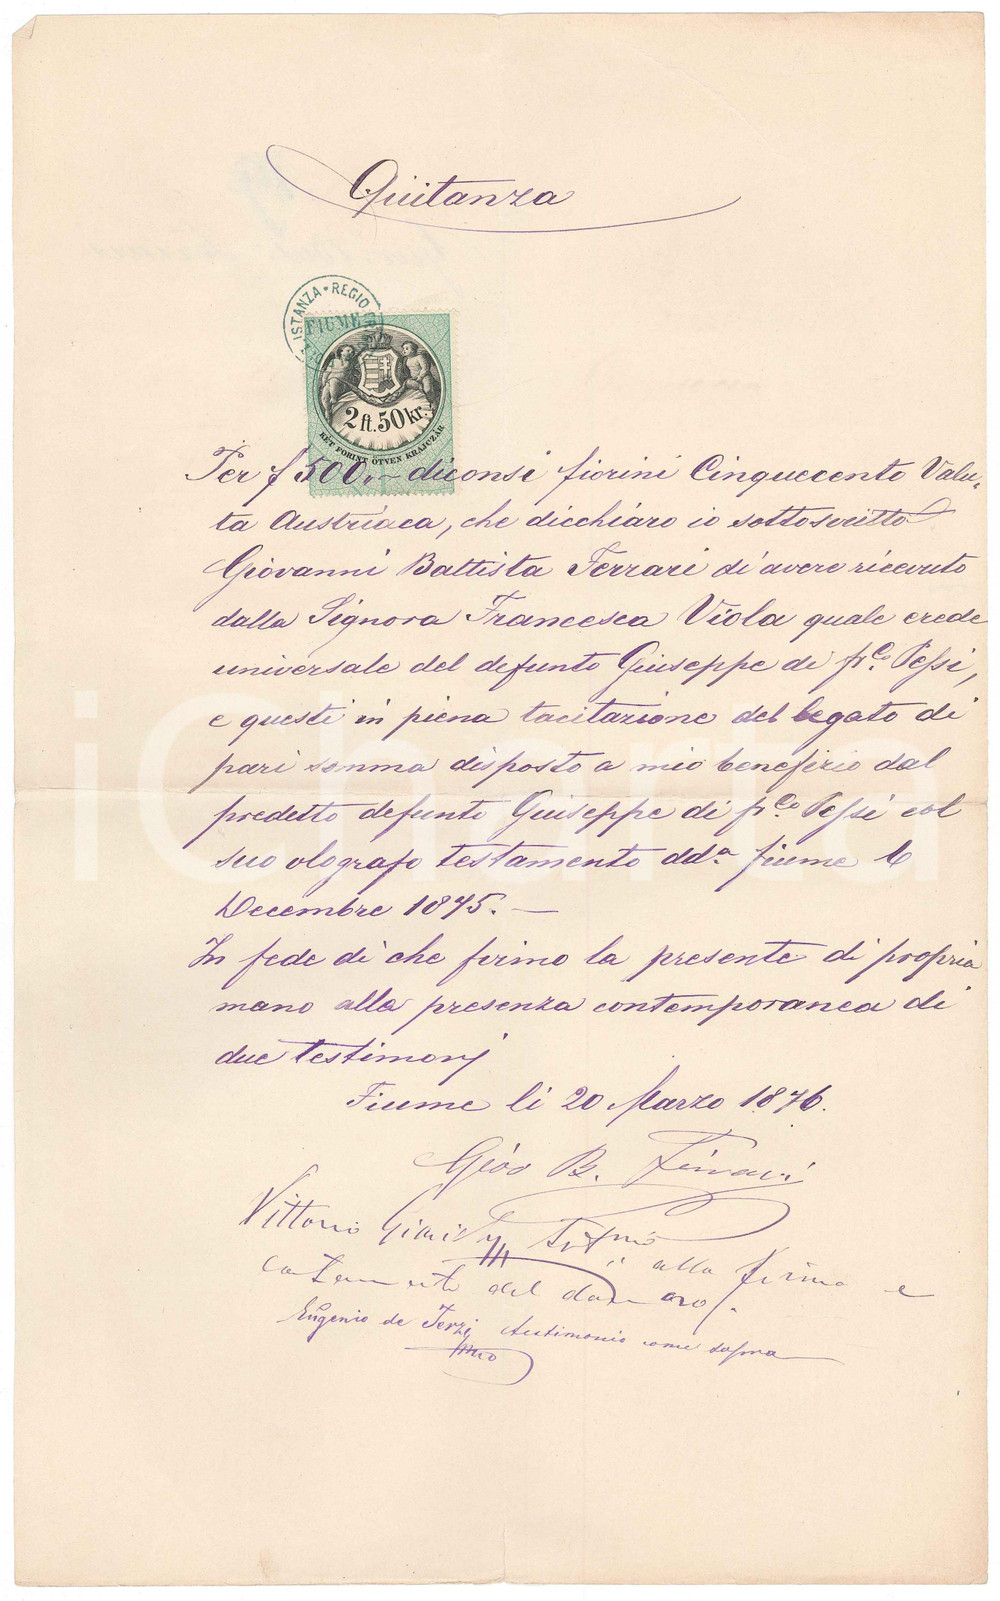 Quitanza
ISTANZA * REGIO
FIUME
2 ft. 50 kr.
KÉT FORINT ÖTVEN KRAJCZÁR
Per f 500,- diconsi fiorini Cinquecento Valu-
ta Austriaca, che dicchiaro io sottoscritto
Giovanni Battista Ferrari di avere ricevuto
dalla Signora Francesca Viola quale erede
universale del defunto Giuseppe di fr.co Pessi,
e questi in piena tacitazione del legato di
pari somma disposto a mio benefizio dal
predetto defunto Giuseppe di fr.co Pessi col
suo olografo testamento dd.a fiume 6
Decembre 1875. —
In fede di che firmo la presente di propria
mano alla presenza contemporanea di
due testimonj
Fiume li 20 Marzo 1876.
Giov B. Ferrari
Vittorio alla firma e
del
Eugenio de Terzi testimonio come sopra
mpo
iCharta